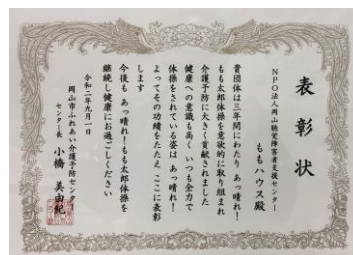 表彰状
NPO法人岡山聴覚障害者支援センター
ももハウス殿
貴団体は三年間にわたり あっ晴れ!
もも太郎体操を意欲的に取り組まれ
介護予防に大きく貢献されました
健康への意識も高く いつも全力で
体操をされている姿は あっ晴れ!
よってその功績をたたえ ここに表彰
します
今後も あっ晴れ!もも太郎体操を
継続し健康にお過ごしください
令和二年九月一日
岡山市ふれあい介護予防センター
センター長 小橋 美由紀